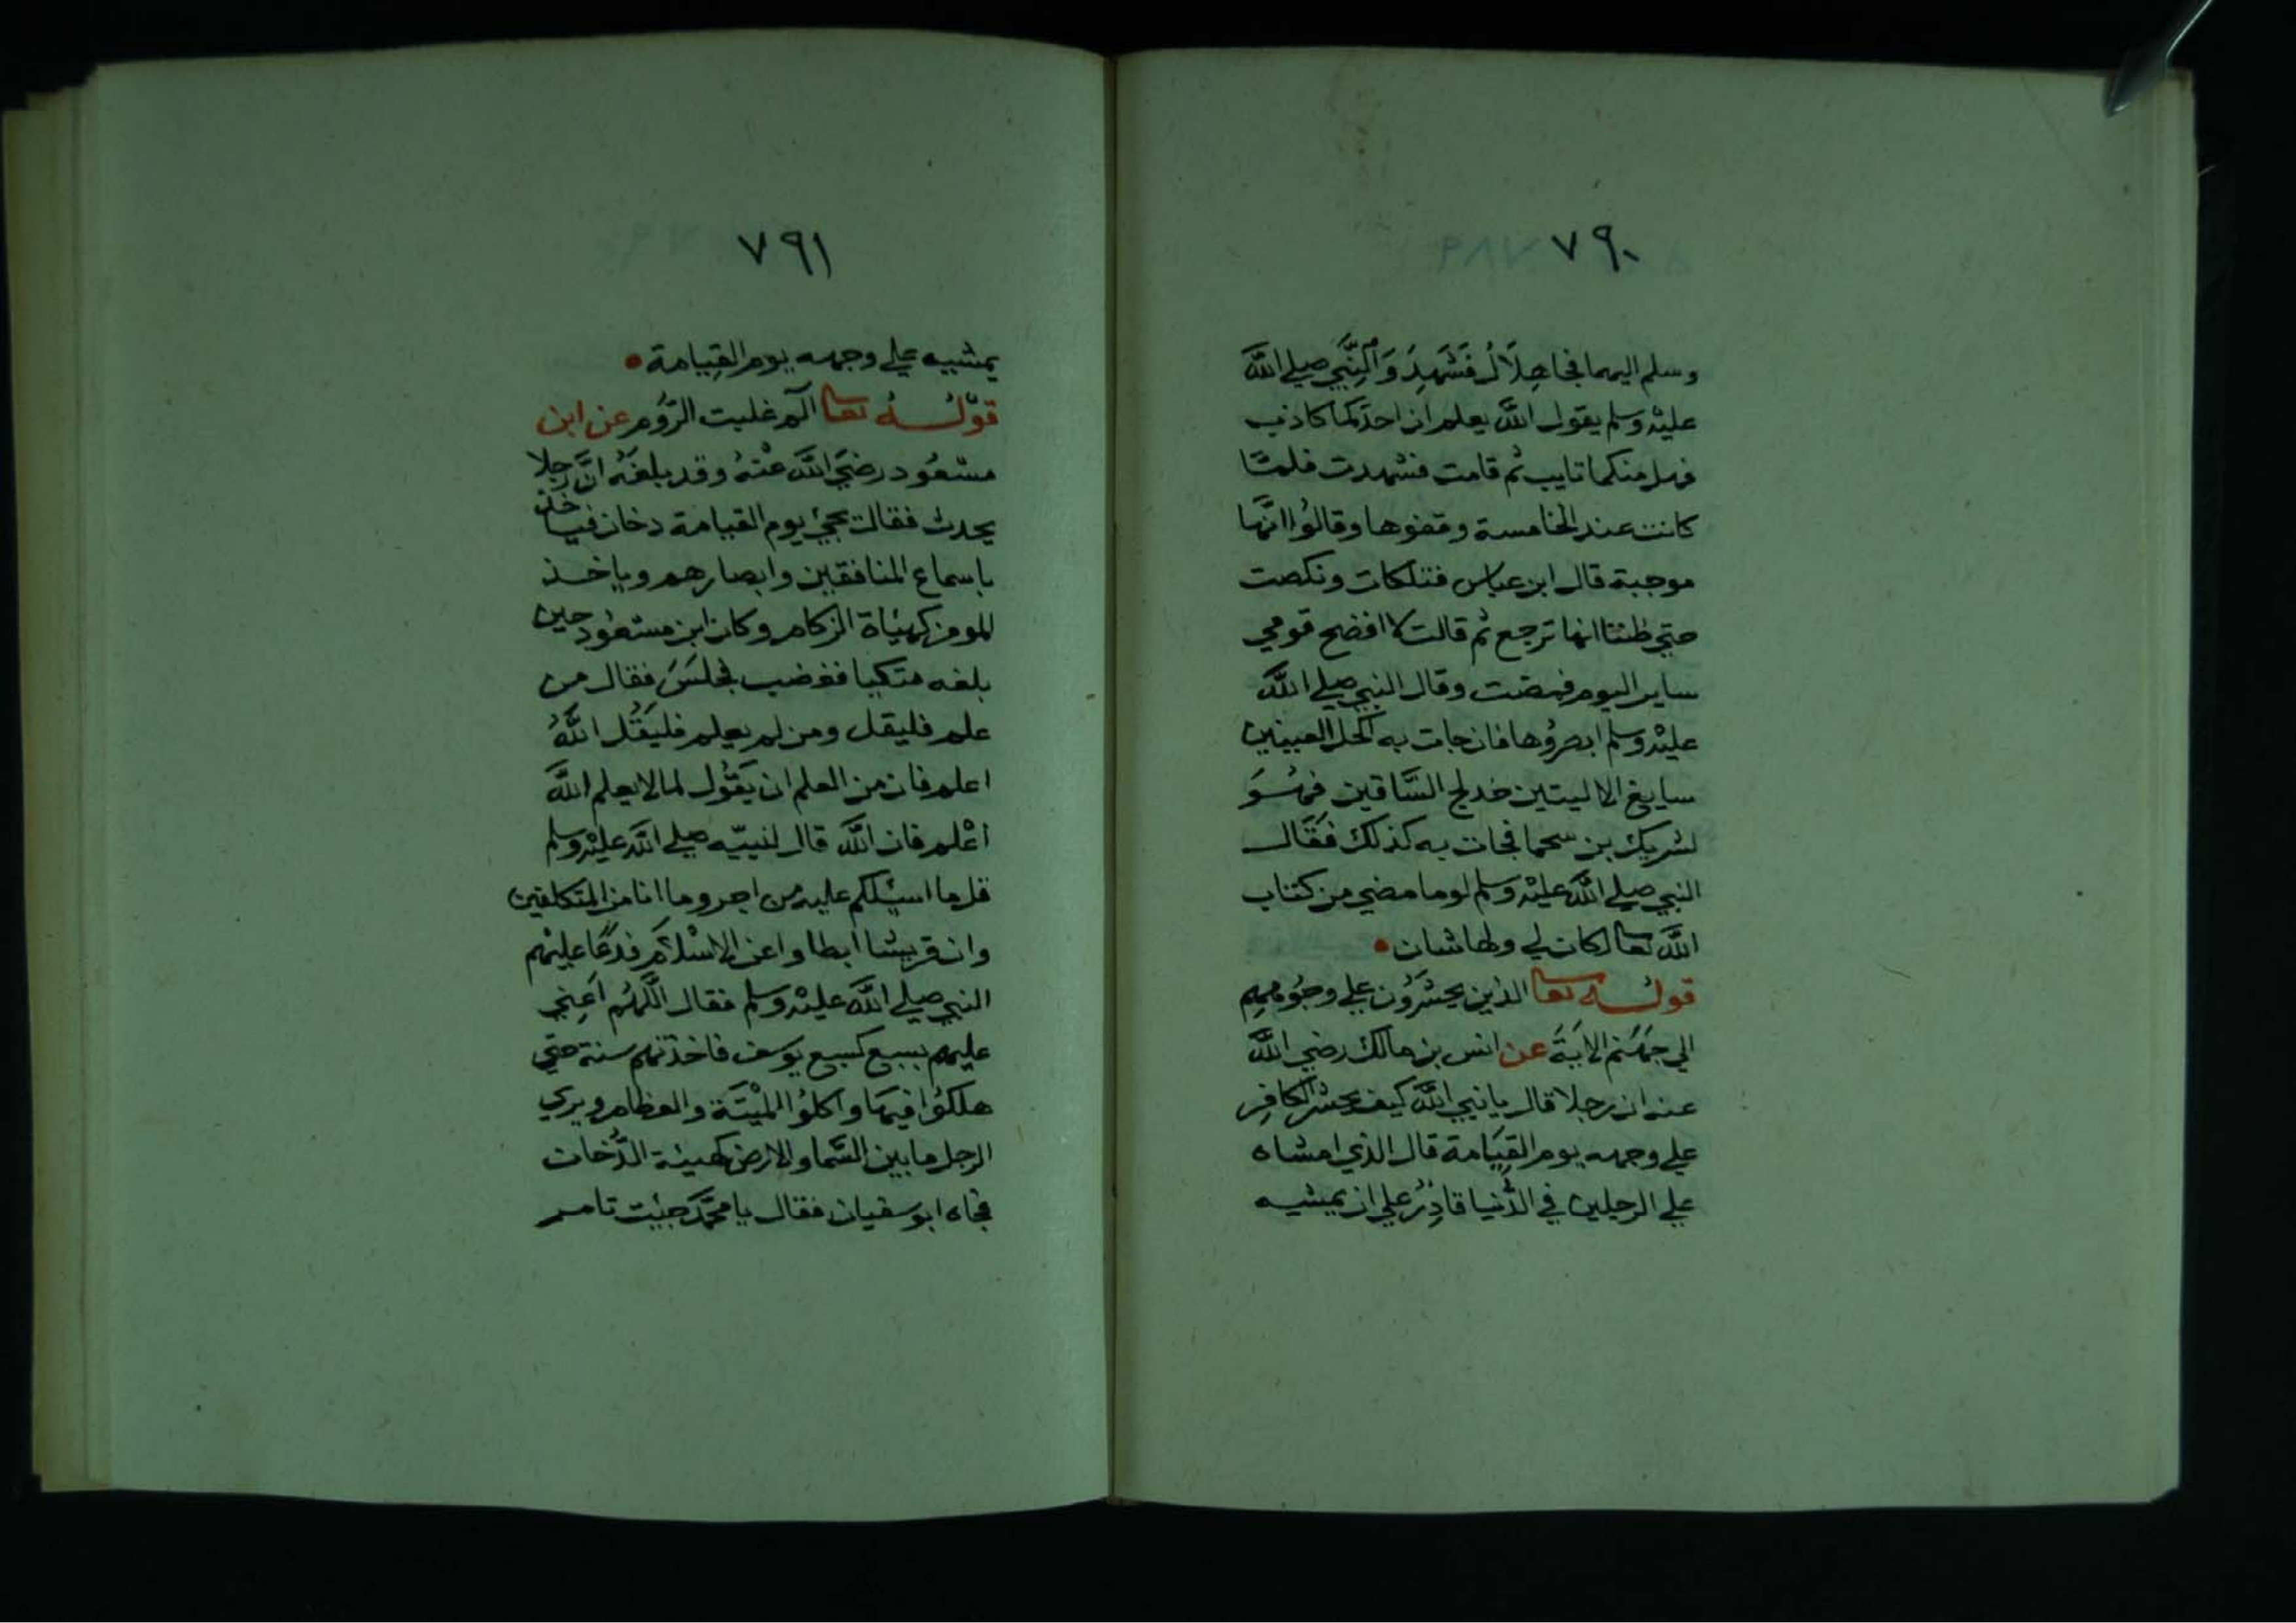 ٧٩٠
وسلم اليهما فجا هِلَالُ فَشَهِدَ وَالنَّبِي صلي اللَّه
عليْه وسلم يقول اللَّه يعلم ان احدَكما كاذب
فهل منكما تايب ثم قامت فشهدت فلمَّا
كانت عند الخامسة وقفوها وقالوُا انَّها
موجبة قال ابن عباس فتلكات ونكصت
حتي ظننا انها ترجع ثم قالت لا افضح قومي
ساير اليوم فمضت وقال النبي صلي اللَّه
عليْه وسلم ابصروُها فان جات به اكحل العينين
سابغ الاليتين خدلج السَّاقين فهُوَ
لشريك بن سحما فجات به كذلك فقَال
النبي صلي اللَّه عليْه وسلم لوما مضي من كتاب
اللَّه تعالي لكان لي ولها شان
قولُه تعالي الذين يحشرُون علي وجُوههِم
الي جهَنم الايَة عن انس بن مالك رضي اللَّه
عنه ان رجلا قال يا نبي اللَّه كيف يحشر الكافِر
علي وجهه يوم القِيَامة قال الذي امشاه
علي الرجلين في الدُّنيا قادِرٌ علي ان يمشيه
٧٩١
يمشيه علي وجهه يوم القِيامة
قوْلُه تعالي الٓم غلبت الرُّوم عن ابن
مسْعُود رضيَ اللَّه عنْهُ وقد بلغَهُ انَّ رجلا
يحدث فقال يجيُ يوم القيامة دخان فياخذ
باسماع المنافقين وابصارهم وياخذ
المومن كهيئاة الزكام وكان ابن مسْعُود حين
بلغه متكيا فغضب فجلسَ فقال من
علم فليقل ومن لم يعلم فليَقُل اللَّهُ
اعلم فان من العلم ان يَقُول لما لا يعلم اللَّه
اعْلم فان اللَّه قال لنبيّه صلي اللَّه عليْه وسلم
قل ما اسئلكم عليه من اجر وما انا من المتكلفين
وان قريشا ابطاوا عن الاسْلَام فدعَا عليْهم
النبي صلي اللَّه عليْه وسلم فقال اللَّهُم اَعِنِي
عليهم بسبع كسبع يوسَف فاخذتهم سنة حتي
هلكوُا فيهَا واكلوُا الميْتَة والعظام ويري
الرجل ما بين السَّما والارض كهيئة الدُّخان
فجاه ابو سفيان فقال يا محمَّد جيئت تامر